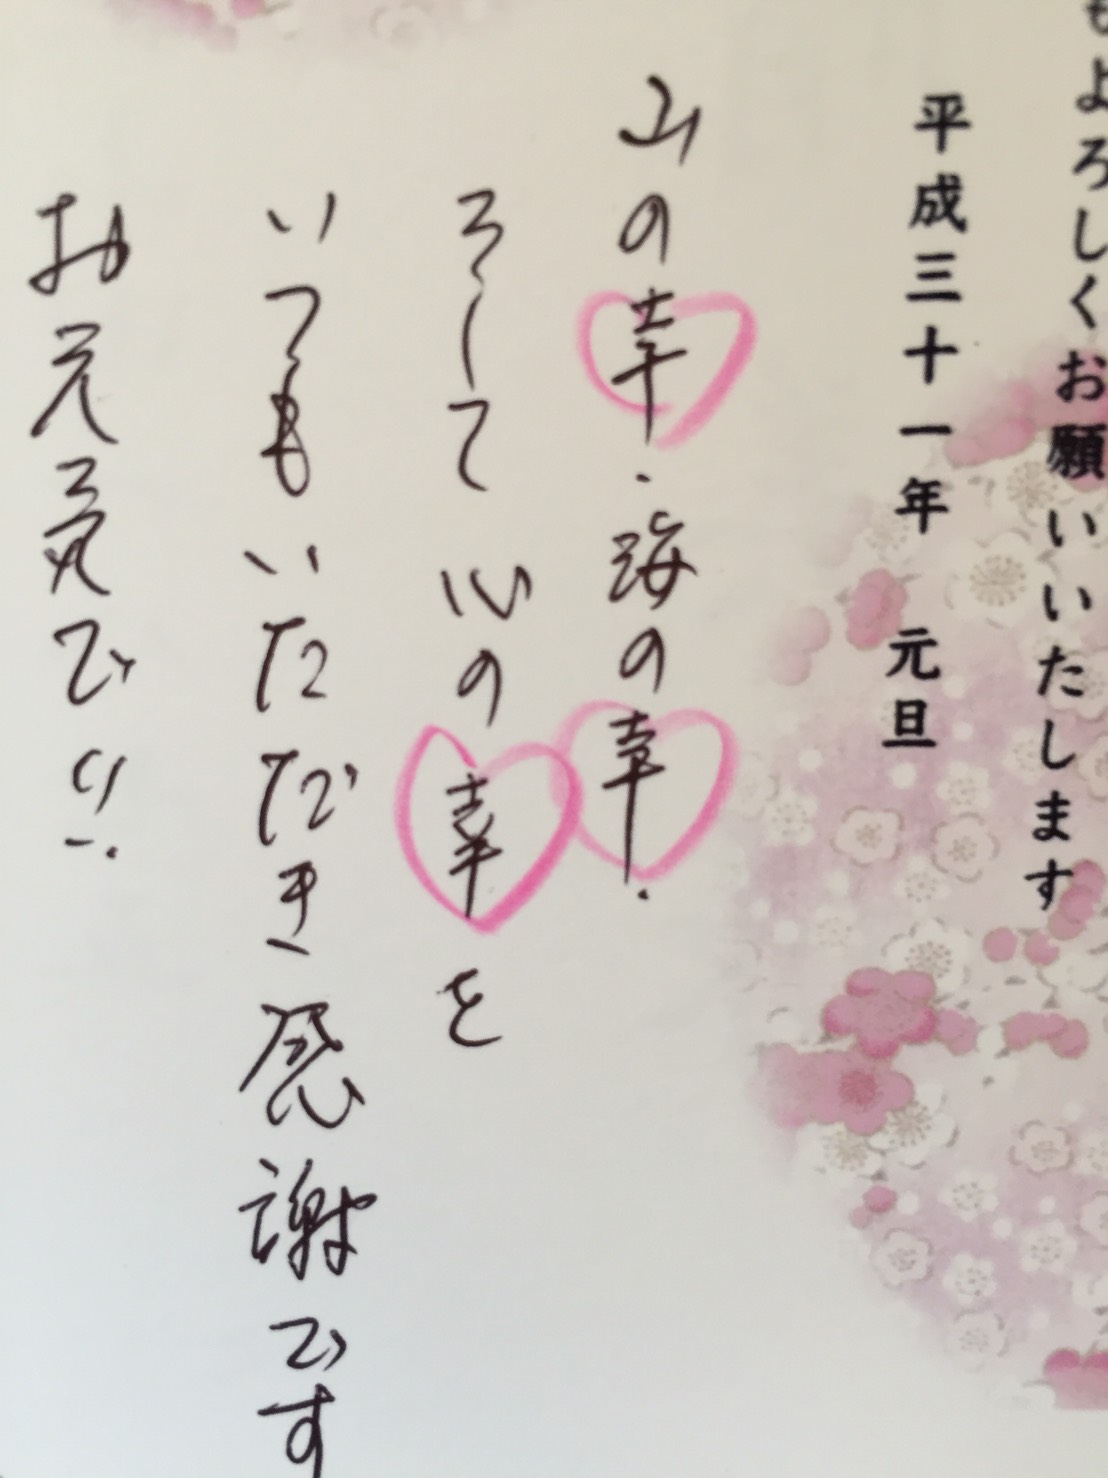 もよろしくお願いいたします
平成三十一年 元旦
山の幸・海の幸・
そして心の幸を
いつもいただき感謝です
お元気で!!